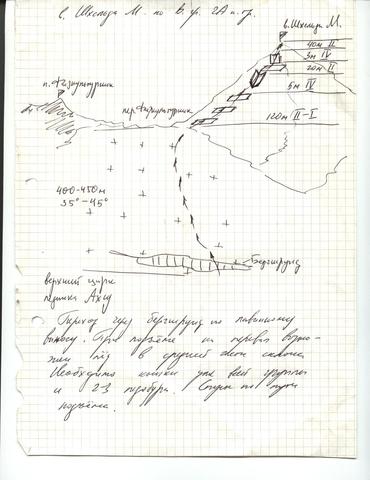 в. Шхельда М. по В. гр. 2А к. тр.
в. Шхельда М.
40м II
3м IV
20м II
5м IV
120м II-I
п. Физкультурник
пер. Физкультурник
400-450м
35°-45°
Бергшрунд
верхний цирк
ледника Ахсу
Переход через бергшрунд по лавинному
выносу. При подъёме на перевал возмо-
жен лёд в средней части склона
Необходимы кошки для всей группы
и 2-3 ледобура. Спуск по пути
подъёма.